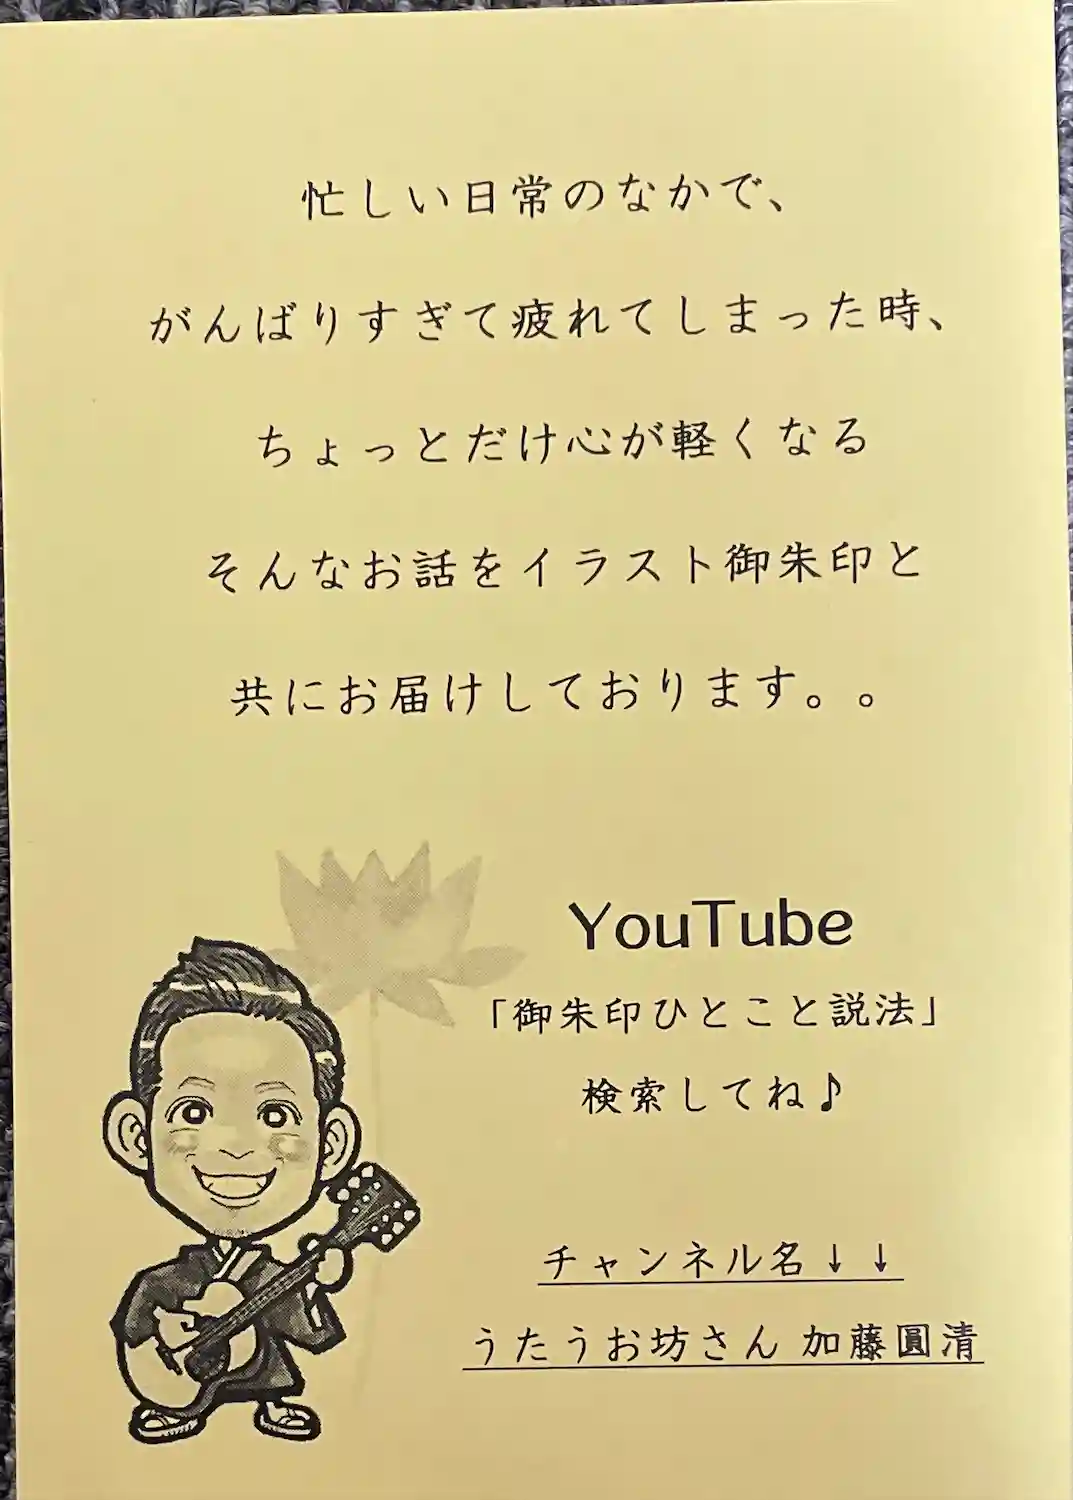 忙しい日常のなかで、
がんばりすぎて疲れてしまった時、
ちょっとだけ心が軽くなる
そんなお話をイラスト御朱印と
共にお届けしております。。
YouTube
「御朱印ひとこと説法」
検索してね♪
チャンネル名↓↓
うたうお坊さん 加藤圓清